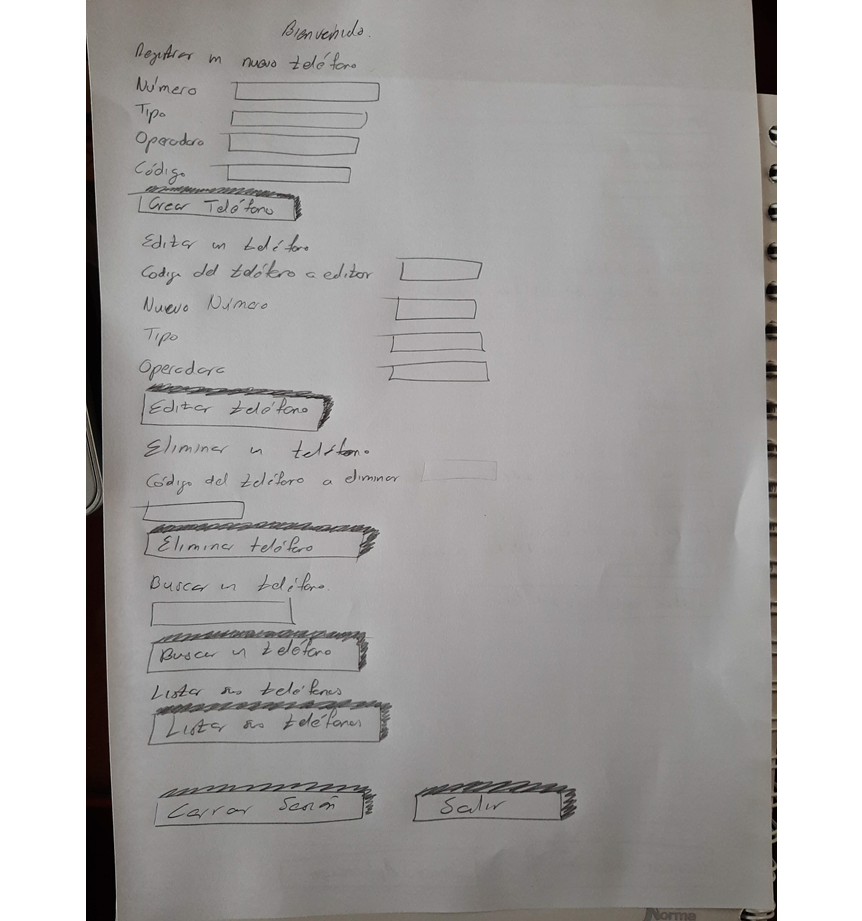 Bienvenido.
Registrar un nuevo teléfono
Número
Tipo
Operadora
Código
Crear Teléfono
Editar un teléfono
Codigo del teléfono a editar
Nuevo Número
Tipo
Operadora
Editar teléfono
Eliminar un teléfono
Código del teléfono a eliminar
Eliminar teléfono
Buscar un teléfono.
Buscar un teléfono
Listar sus teléfonos
Listar sus teléfonos
Cerrar Sesión Salir
Norma